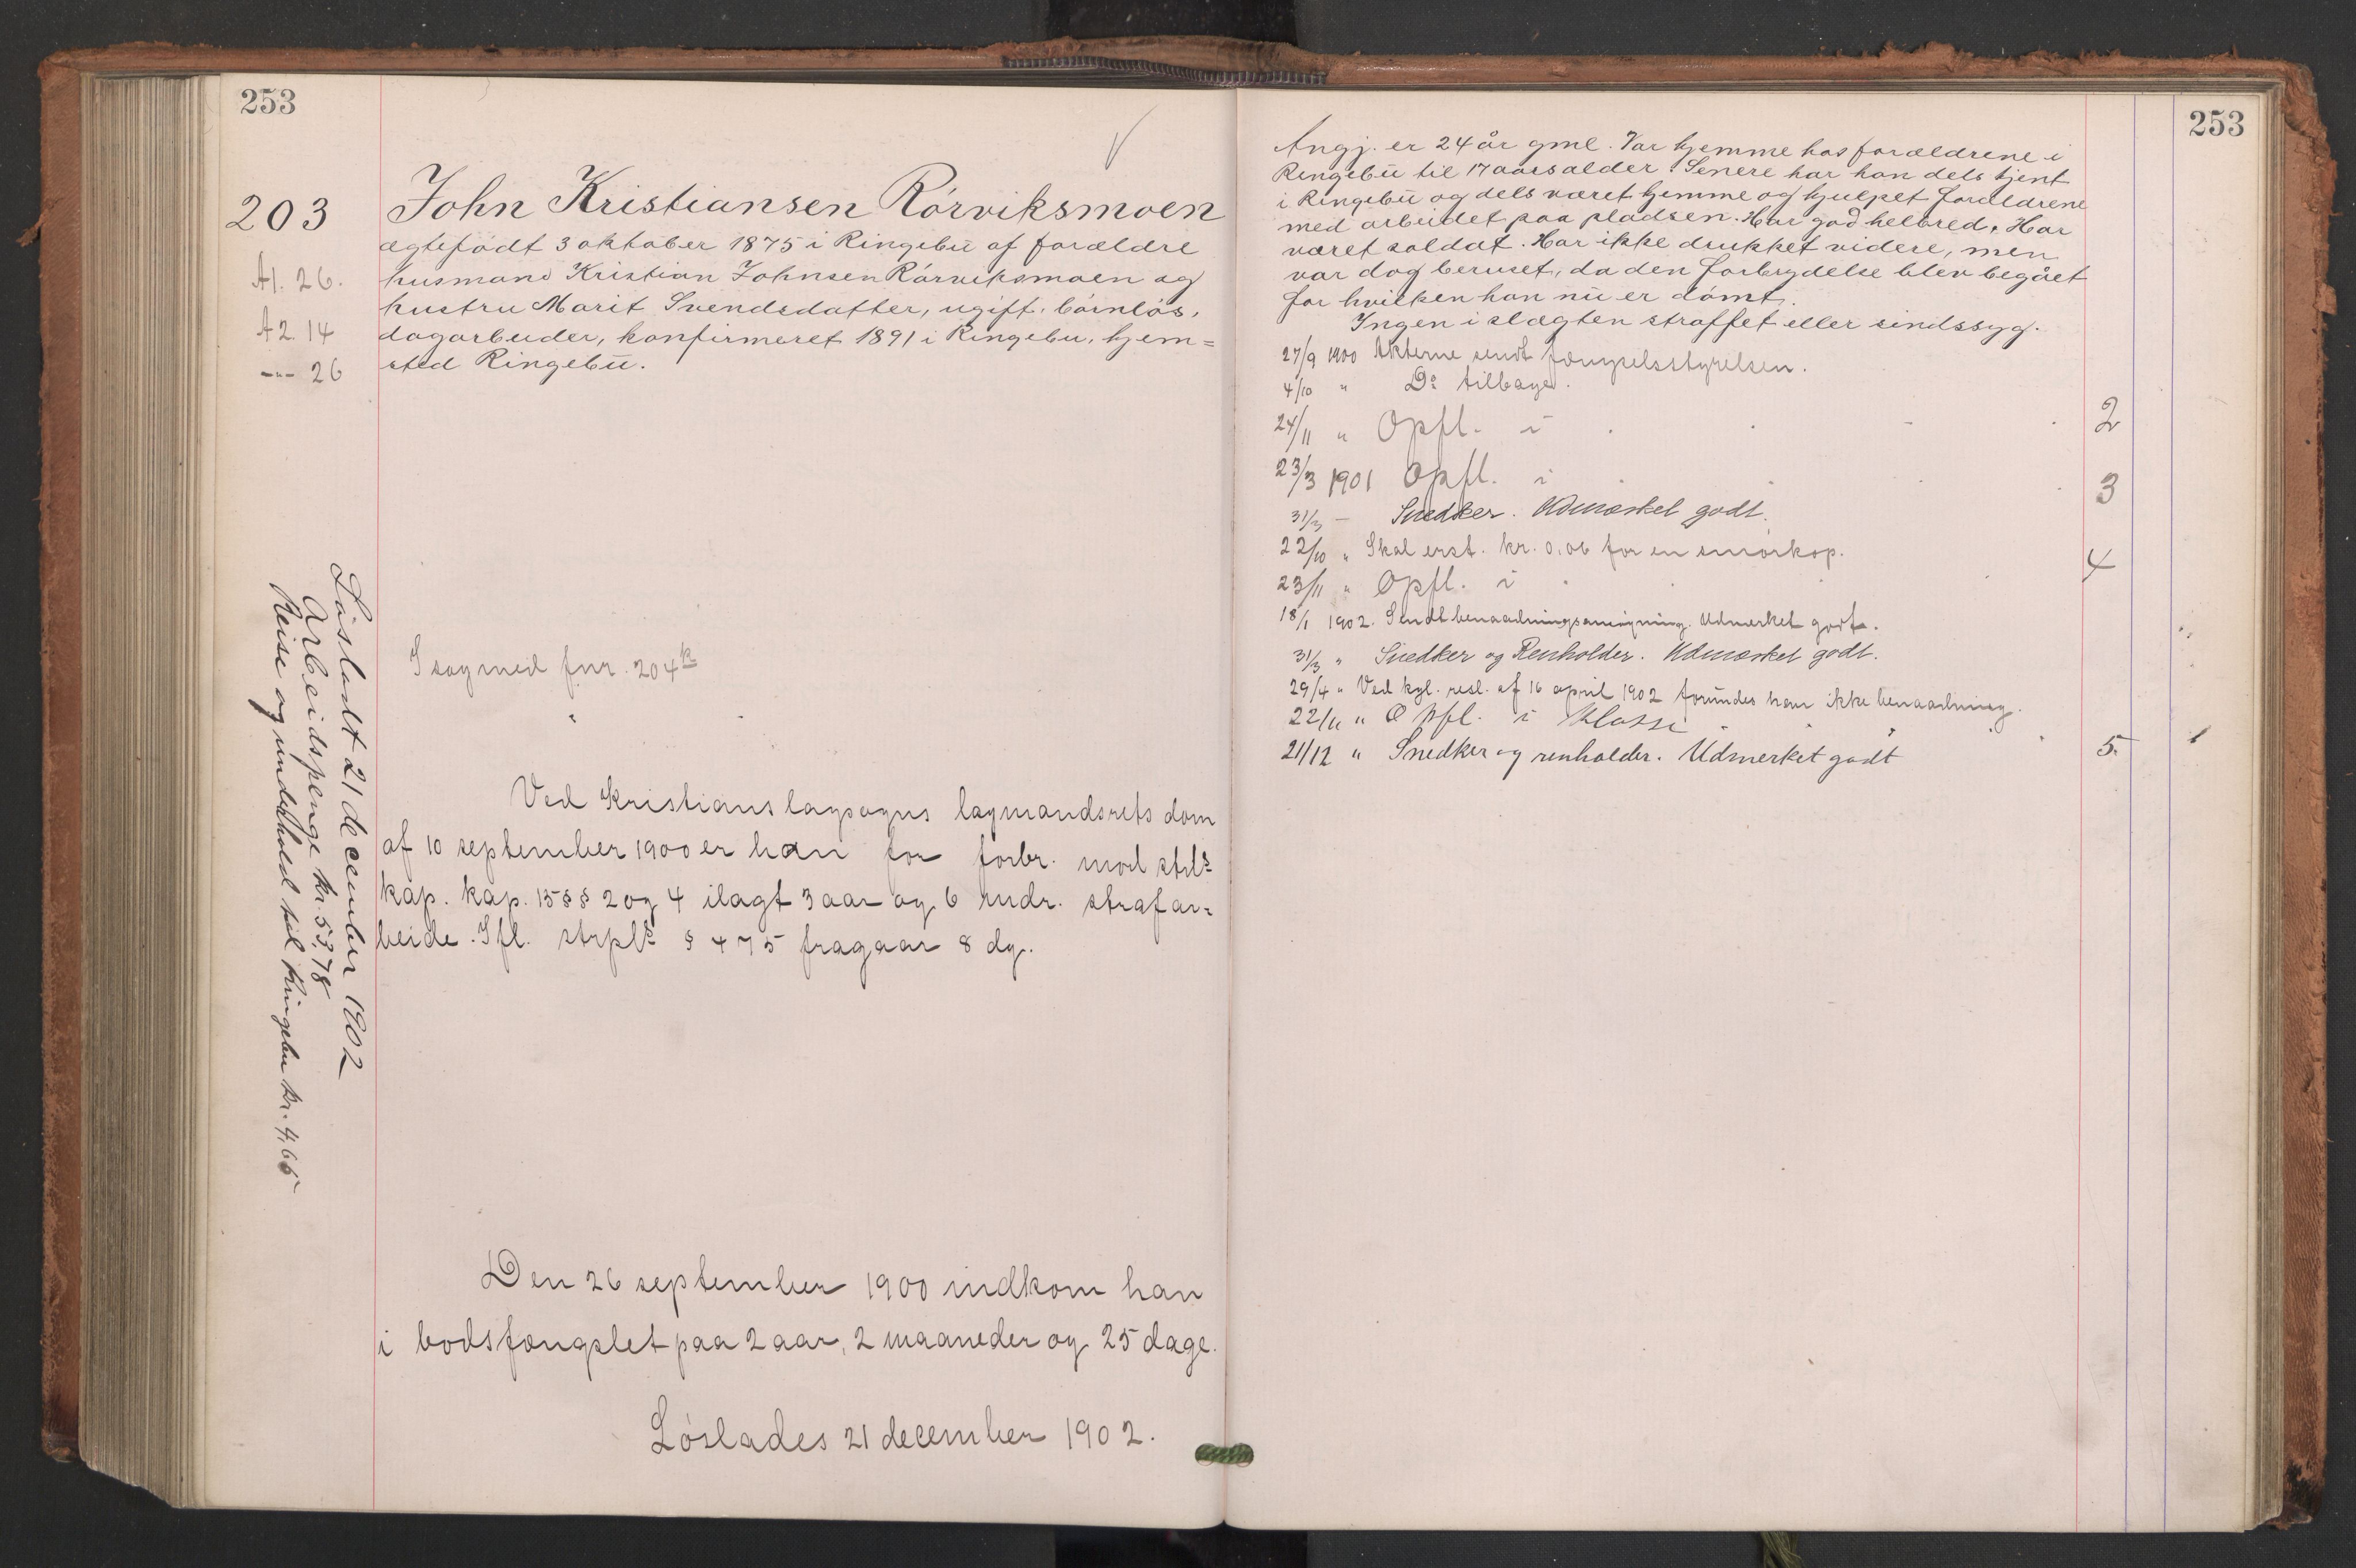 253
203
John Kristiansen Rórviksmoen
ægtefödt 3 oktober 1875 i Ringebu af forældre
husmand Kristian Johnsen Rórviksmoen og
hustru Marit Svendsdatter, ugift, bórnlós,
dagarbeider, konfirmeret 1891 i Ringebu, hjem=
sted Ringebu.
A1. 26.
A2. 14
-"- 26
I sag med fnr. 204
Ved Kristians lagsogns lagmandsrets dom
af 10 september 1900 er han for forbr. mod
kap. kap. 15 §§ 2 og 4 ilagt 3 aar og 6 mdr. strafar=
beide. Ifl. strpl. § 475 fragaar 8 dg.
Den 26 september 1900 indkom han
i bodsfængslet paa 2 aar, 2 maaneder og 25 dage.
Lóslades 21 december 1902.
Lósladt 21 december 1902
Arbeidspenge kr. 53.78
Reise og underhold til Ringebu kr. 4,66
253
Angj. er 24 år gml. Var hjemme hos forældrene i
Ringebu til 17 aarsalder. Senere har han dels tjent
i Ringebu og dels været hjemme og hjulpet forældrene
med arbeidet paa pladsen. Har god helbred. Har
været soldat. Har ikke drukket videre, men
var dog beruset, da den forbrydelse blev begået
for hvilken han nu er dómt.
Ingen i slægten straffet eller sindssyg.
27/9 1900 Akterne sendt fængselsstyrelsen.
4/10 " Do tilbage.
24/11 " Opfl. i 2
23/3 1901 Opfl. i 3
31/3 - Snedker. Udmærket godt.
22/10 " Skal erst. kr. 0,06 for en smórkop.
23/11 " Opfl. i 4
18/1 1902. Sendt benaadningsansógning. Udmerket godt.
31/3 " Snedker og Renholder. Udmærket godt.
29/4 " Ved kgl. resl. af 16 april 1902 forundes han ikke benaadning.
22/11 " Opfl. i Klasse 5.
21/12 " Snedker og renholder. Udmerket godt